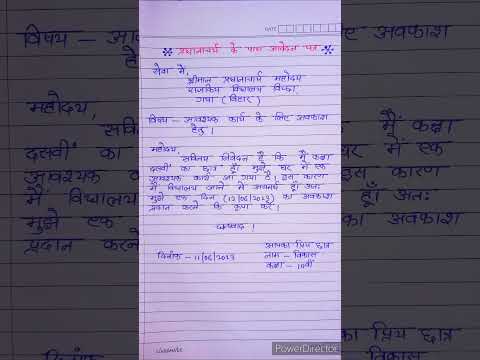 DATE
प्रधानाचार्य के पास आवेदन पत्र
सेवा में,
श्रीमान प्रधानाचार्य महोदय
राजकिय विधालय
गया (बिहार)
विषय - आवश्यक कार्य के लिए अवकाश
हेतु।
महोदय,
सविनय निवेदन है कि मैं कक्षा
दसवीं का छात्र हूँ। मुझे घर में एक
आवश्यक कार्य आ गया है। इस कारण
मैं विधालय आने में असमर्थ हूँ। अतः
मुझे एक दिन (12/06/2023) का अवकाश
प्रदान करने कि कृपा करें।
धन्यवाद।
दिनाँक - 11/06/2023
आपका प्रिय छात्र
नाम - विकास
कक्षा - 10वीं
classmate
PowerDirector